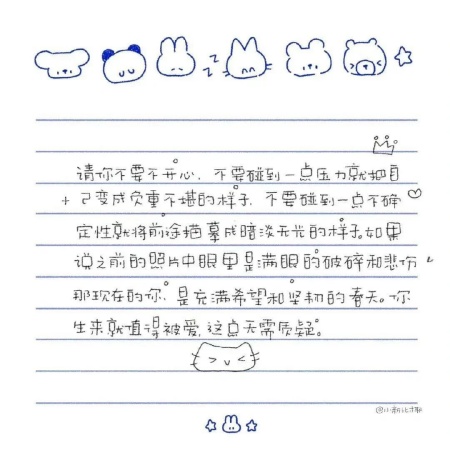 zzz
请你不要不开心,不要碰到一点压力就把自
己变成负重不堪的样子,不要碰到一点不确
定性就将前途描摹成暗淡无光的样子。如果
说之前的照片中眼里是满眼的破碎和悲伤
那现在的你,是充满希望和坚韧的春天。你
生来就值得被爱,这点无需质疑。